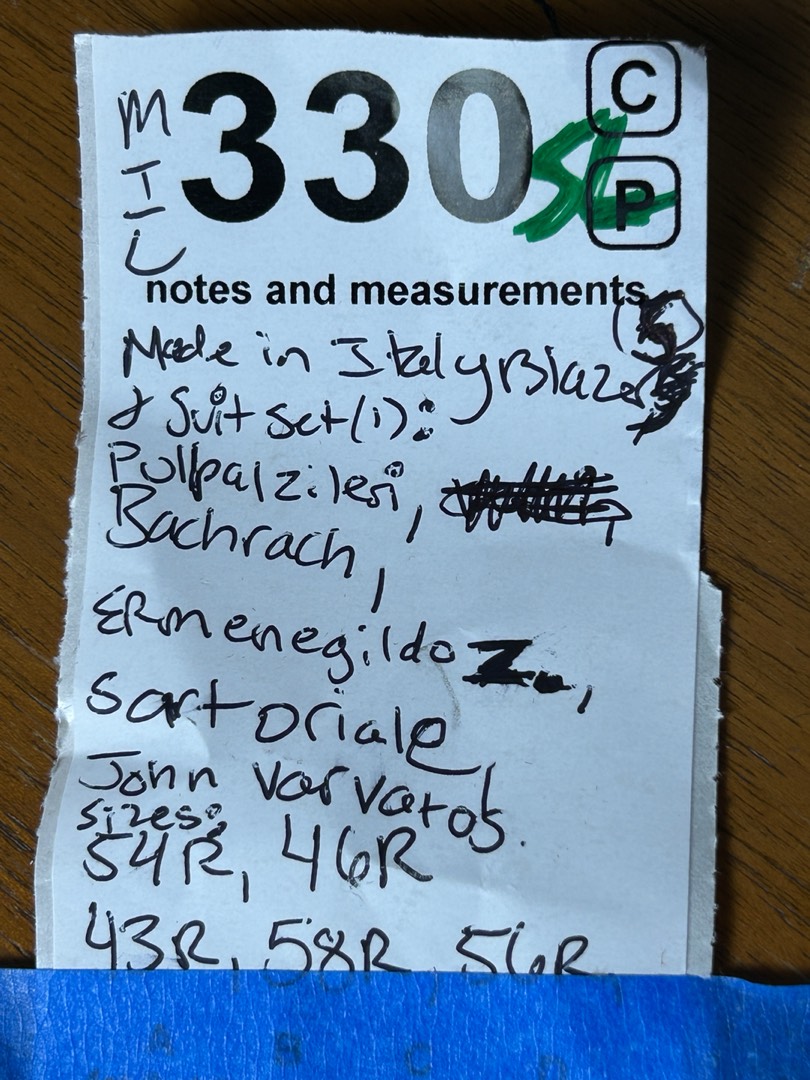 MIL
330
SL
C
P
notes and measurements
Made in Italy Blazer
& Suit Set (1):
Pullpalzileri,
Bachrach,
ERmenegildo Z.,
Sartoriale,
John Varvatos.
Sizes:
54R, 46R
43R, 58R, 56R